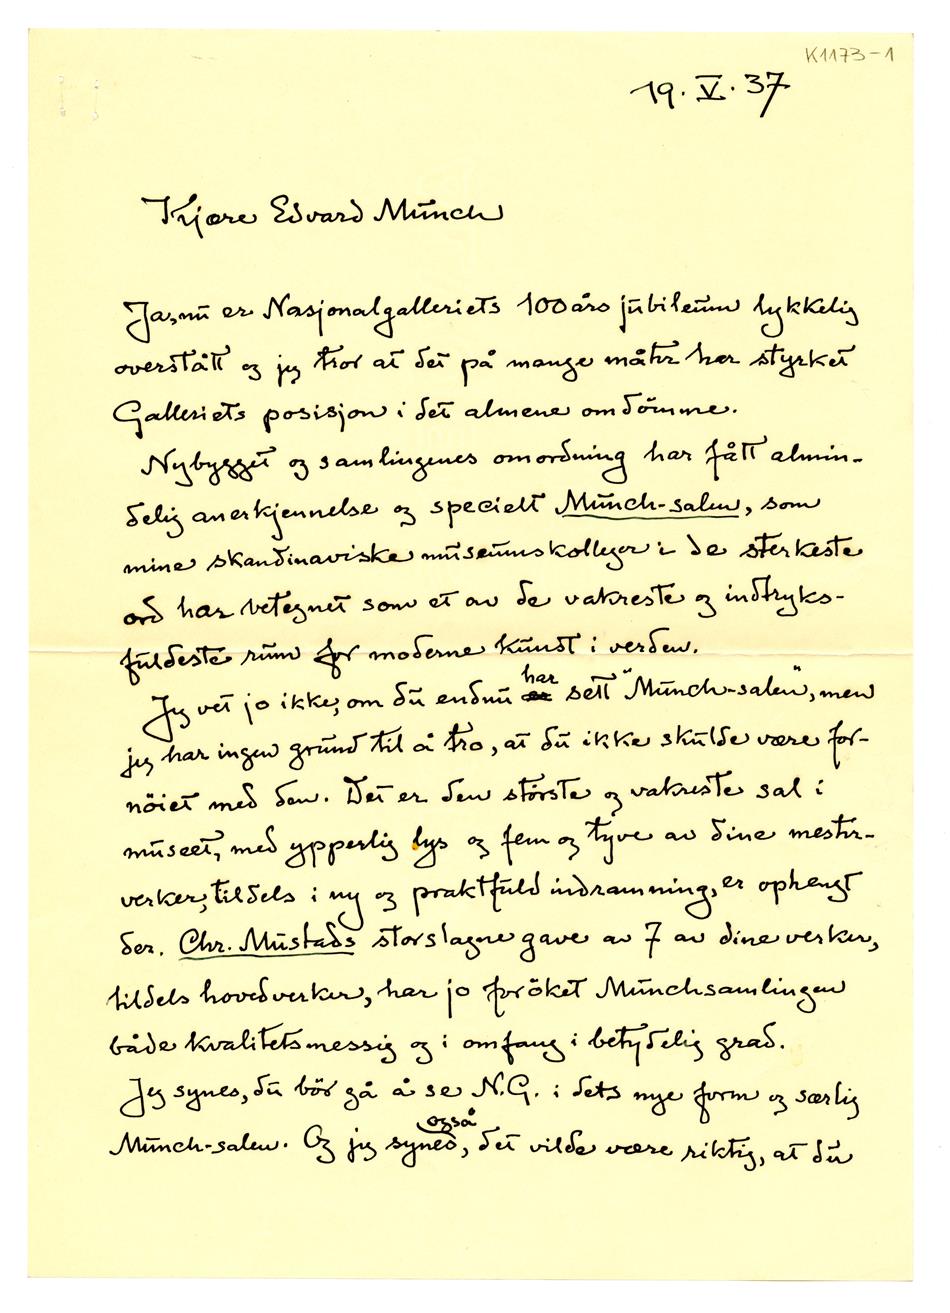 K1173-1
19. V. 37
Kjære Edvard Munch
Ja, nu er Nasjonalgalleriets 100 års jubileum lykkelig
overstått og jeg tror at det på mange måter har styrket
Galleriets posisjon i det almene omdömme.
Nybygget og samlingenes omordning har fått almin-
delig anerkjennelse og specielt Munch-salen, som
mine skandinaviske museumskolleger i de sterkeste
ord har betegnet som et av de vakreste og indtryks-
fuldeste rum for moderne kunst i verden.
Jeg vet jo ikke, om du endnu har sett "Munch-salen", men
jeg har ingen grund til å tro, at du ikke skulde være for-
nöiet med den. Det er den störste og vakreste sal i
museet, med ypperlig lys og fem og tyve av dine mester-
verker, tildels i ny og praktfuld indramning, er ophengt
der. Chr. Mustads storslagne gave av 7 av dine verker,
tildels hovedverker, har jo foröket Munchsamlingen
både kvalitetsmessig og i omfang i betydelig grad.
Jeg synes, du bör gå å se N.G. i dets nye form og særlig
Munch-salen. Og jeg synes også, det vilde være riktig, at du